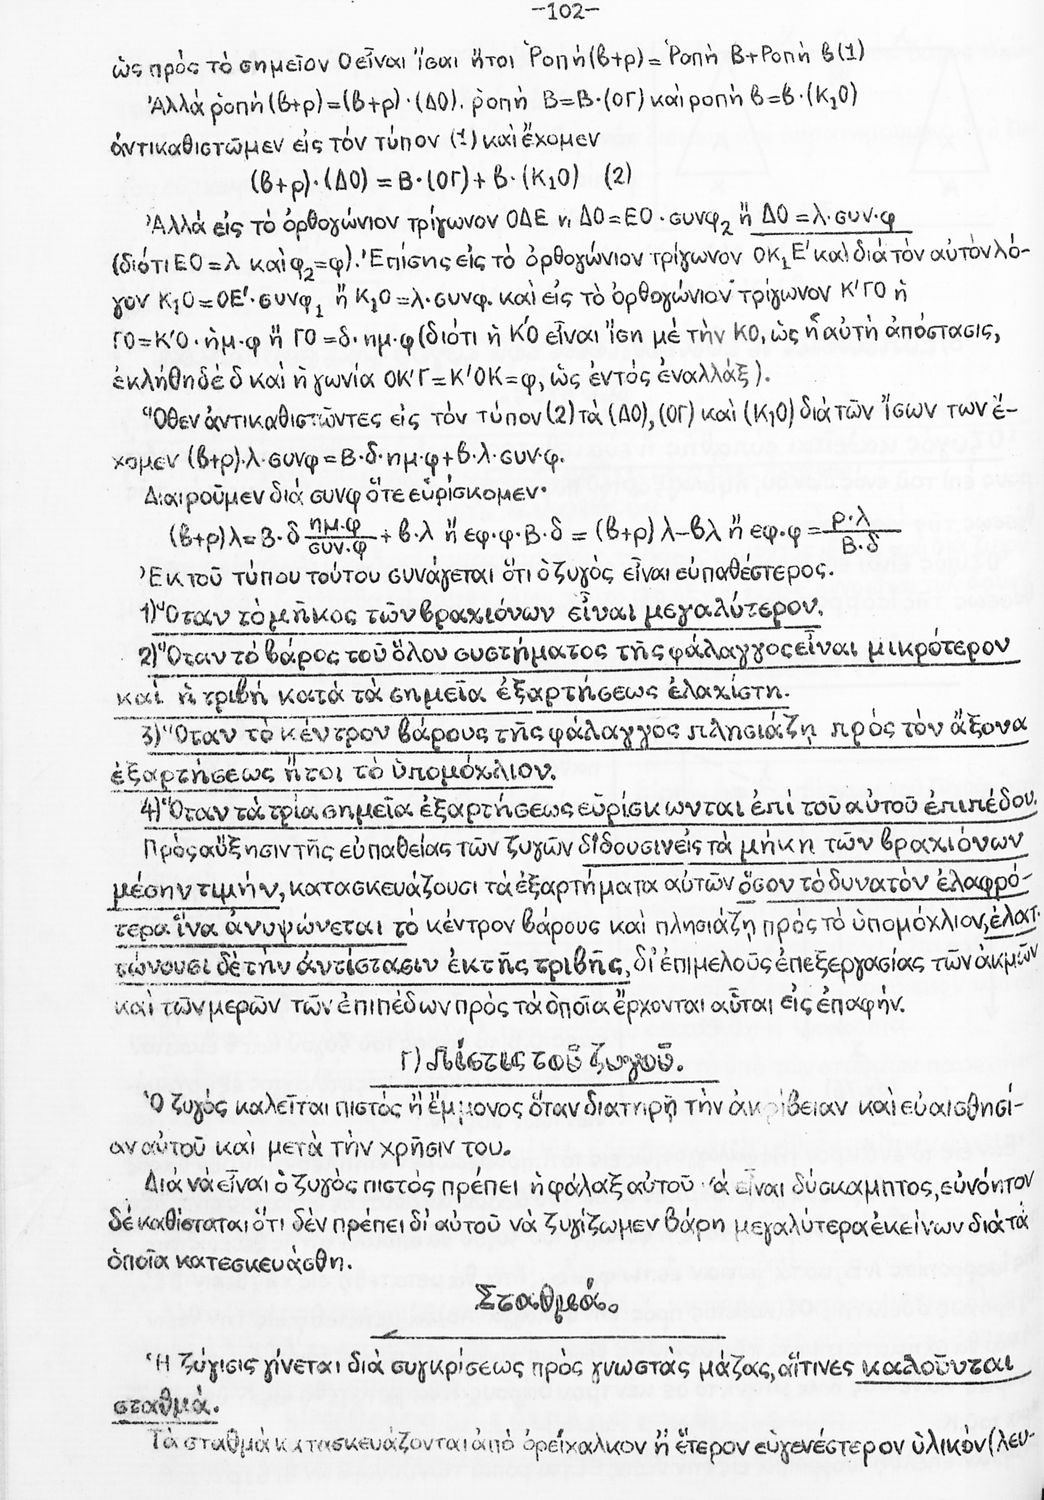 -102-
ὡς πρὸς τὸ σημεῖον Ο εἶναι ἴσαι ἤτοι Ῥοπή (β+ρ) = Ῥοπὴ Β+Ροπὴ β (1)
Ἀλλὰ ῥοπή (β+ρ) = (β+ρ)·(ΔΟ). ῥοπὴ Β=Β·(ΟΓ) καὶ ροπὴ β=β·(Κ₁Ο)
ἀντικαθιστῶμεν εἰς τὸν τύπον (1) καὶ ἔχομεν
(β+ρ)·(ΔΟ) = Β·(ΟΓ) + β·(Κ₁Ο) (2)
Ἀλλὰ εἰς τὸ ὀρθογώνιον τρίγωνον ΟΔΕ ἡ ΔΟ=ΕΟ·συνφ₂ ἢ ΔΟ=λ·συν·φ
(διότι ΕΟ=λ καὶ φ₂=φ). Ἐπίσης εἰς τὸ ὀρθογώνιον τρίγωνον ΟΚ₁Ε' καὶ διὰ τὸν αὐτὸν λό-
γον Κ₁Ο=ΟΕ'·συνφ₁ ἢ Κ₁Ο=λ·συνφ. καὶ εἰς τὸ ὀρθογώνιον τρίγωνον Κ'ΓΟ ἡ
ΓΟ=Κ'Ο·ἡμ·φ ἢ ΓΟ=δ·ημ·φ (διότι ἡ Κ'Ο εἶναι ἴση μὲ τὴν ΚΟ, ὡς ἡ αὐτὴ ἀπόστασις,
ἐκλήθη δὲ δ καὶ ἡ γωνία ΟΚ'Γ=Κ'ΟΚ=φ, ὡς ἐντός ἐναλλάξ).
Ὅθεν ἀντικαθιστῶντες εἰς τὸν τύπον (2) τὰ (ΔΟ), (ΟΓ) καὶ (Κ₁Ο) διὰ τῶν ἴσων των ἔ-
χομεν (β+ρ)·λ·συνφ=Β·δ·ημ·φ+β·λ·συν·φ.
Διαιροῦμεν διὰ συνφ ὅτε εὑρίσκομεν·
(β+ρ)λ=Β·δ ημ·φ/συν·φ + β·λ ἢ εφ·φ·Β·δ = (β+ρ)λ-βλ ἢ εφ·φ= ρ·λ/Β·δ
Ἐκ τοῦ τύπου τούτου συνάγεται ὅτι ὁ ζυγὸς εἶναι εὐπαθέστερος.
1) Ὅταν τὸ μῆκος τῶν βραχιόνων εἶναι μεγαλύτερον.
2) Ὅταν τὸ βάρος τοῦ ὅλου συστήματος τῆς φάλαγγος εἶναι μικρότερον
καὶ ἡ τριβὴ κατὰ τὰ σημεῖα ἐξαρτήσεως ἐλαχίστη.
3) Ὅταν τὸ κέντρον βάρους τῆς φάλαγγος πλησιάζῃ πρὸς τὸν ἄξονα
ἐξαρτήσεως ἤτοι τὸ ὑπομόχλιον.
4) Ὅταν τὰ τρία σημεῖα ἐξαρτήσεως εὑρίσκωνται ἐπὶ τοῦ αὐτοῦ ἐπιπέδου.
Πρὸς αὔξησιν τῆς εὐπαθείας τῶν ζυγῶν δίδουσιν εἰς τὰ μήκη τῶν βραχιόνων
μέσην τιμήν, κατασκευάζουσι τὰ ἐξαρτήματα αὐτῶν ὅσον τὸ δυνατὸν ἐλαφρό-
τερα ἵνα ἀνυψώνεται τὸ κέντρον βάρους καὶ πλησιάζῃ πρὸς τὸ ὑπομόχλιον, ἐλατ-
τώνουσι δὲ τὴν ἀντίστασιν ἐκ τῆς τριβῆς, δι' ἐπιμελοῦς ἐπεξεργασίας τῶν ἀκμῶν
καὶ τῶν μερῶν τῶν ἐπιπέδων πρὸς τὰ ὁποῖα ἔρχονται αὗται εἰς ἐπαφήν.
Γ) Πίστις τοῦ ζυγοῦ.
Ὁ ζυγὸς καλεῖται πιστὸς ἢ ἔμμονος ὅταν διατηρῇ τὴν ἀκρίβειαν καὶ εὐαισθησί-
αν αὐτοῦ καὶ μετὰ τὴν χρῆσιν του.
Διὰ νὰ εἶναι ὁ ζυγὸς πιστὸς πρέπει ἡ φάλαξ αὐτοῦ νὰ εἶναι δύσκαμπτος, εὐνόητον
δὲ καθίσταται ὅτι δὲν πρέπει δι' αὐτοῦ νὰ ζυγίζωμεν βάρη μεγαλύτερα ἐκείνων διὰ τὰ
ὁποῖα κατεσκευάσθη.
Σταθμά.
Ἡ ζύγισις γίνεται διὰ συγκρίσεως πρὸς γνωστὰς μάζας, αἵτινες καλοῦνται
σταθμά.
Τὰ σταθμὰ κατασκευάζονται ἀπὸ ὀρείχαλκον ἢ ἕτερον εὐγενέστερον ὑλικὸν (λευ-